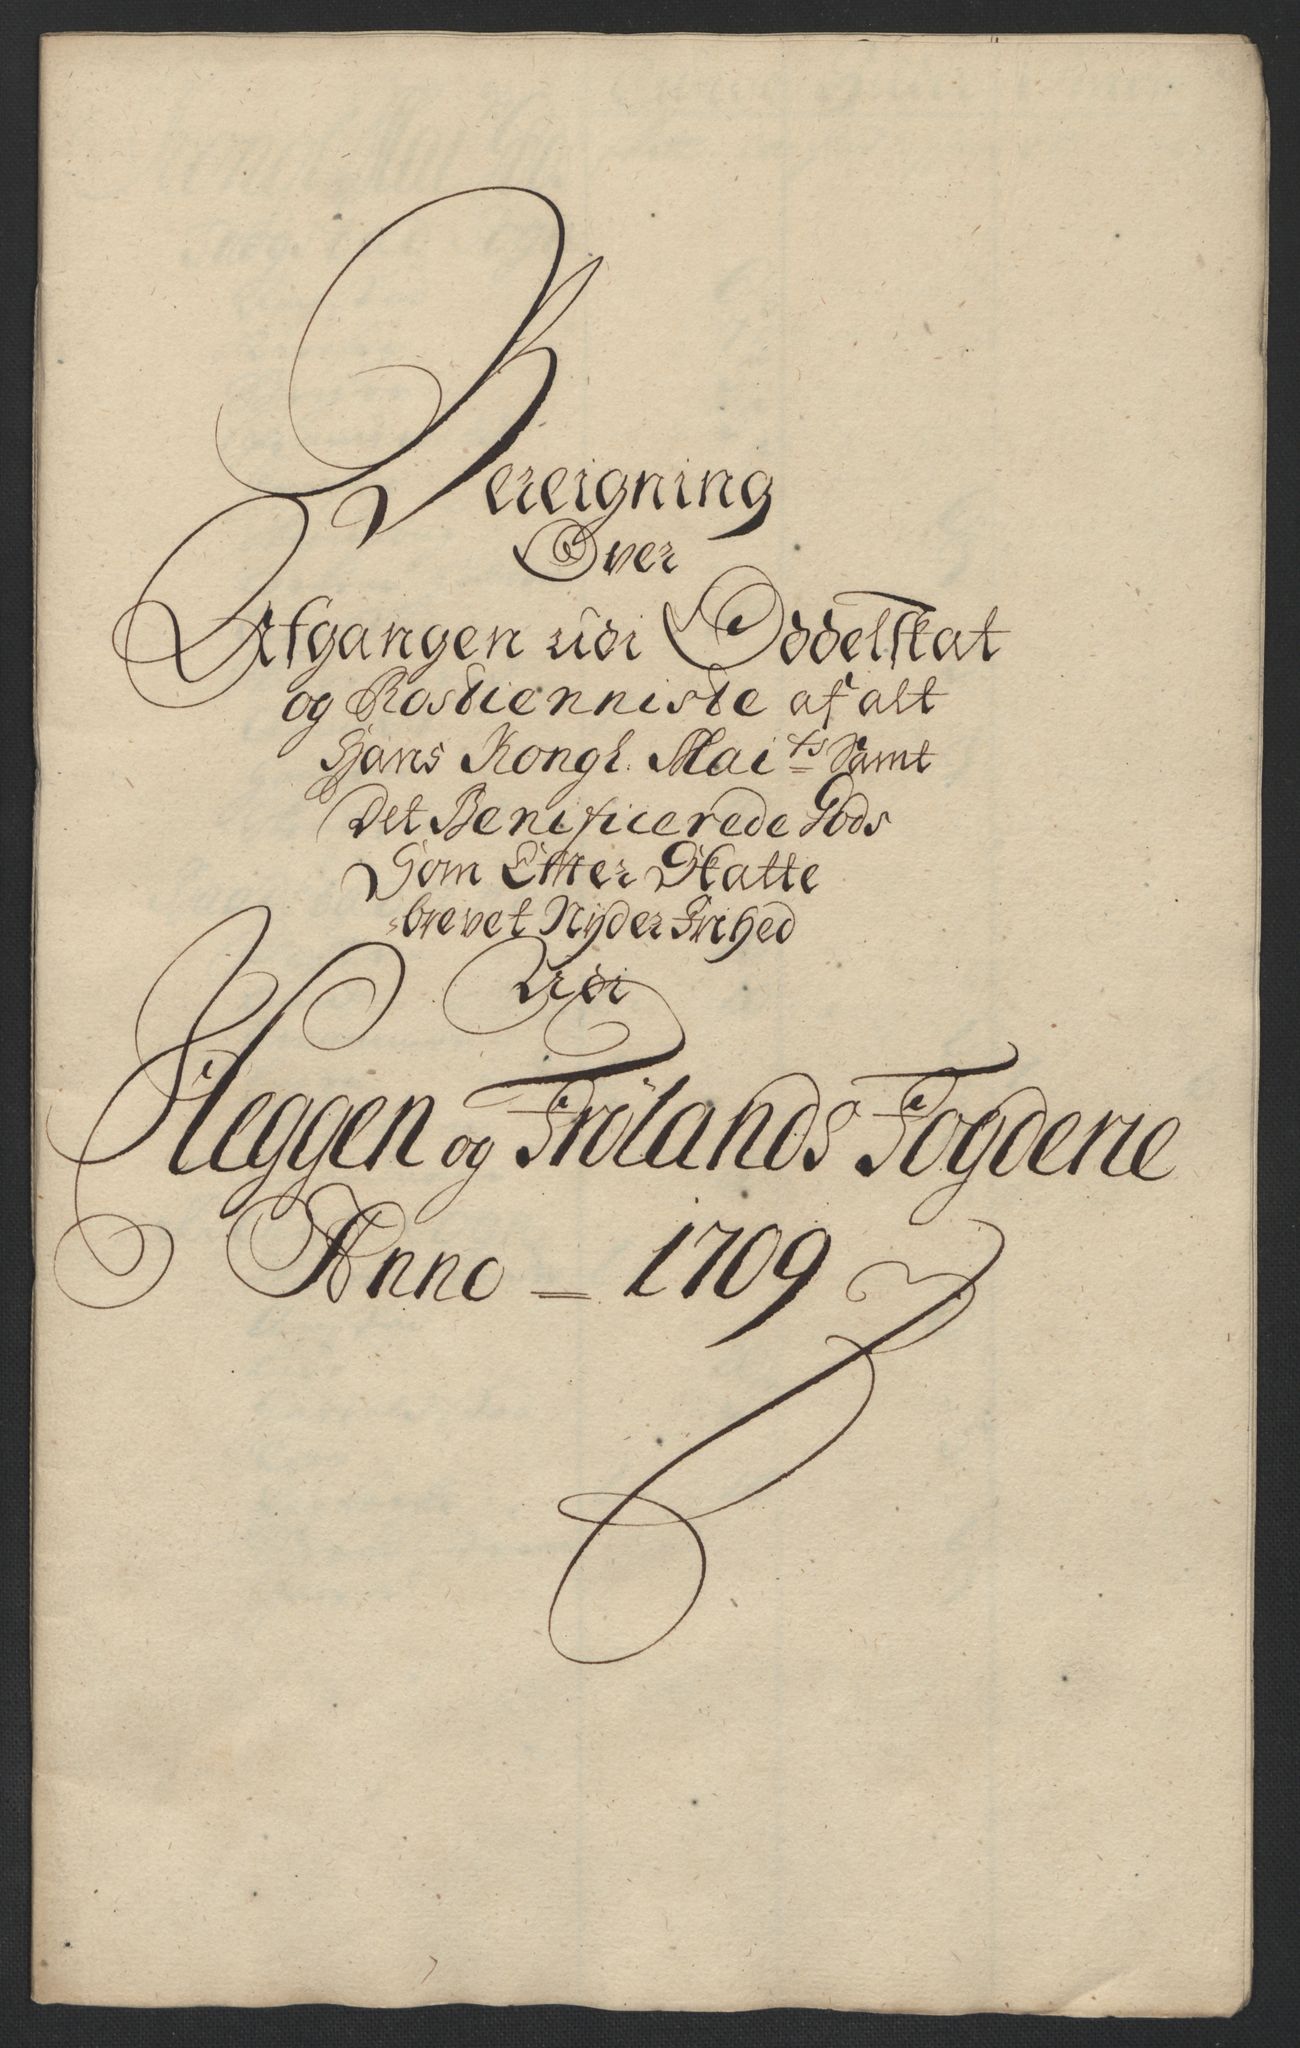 Bereigning
Over
Afgangen udi Oddelskat
og Rostienniste af alt
Hans Kongl. Mai ts Samt
Det Benificerede Gods
Som Effter Skatte
-brevet Nyder Frihed
Udi
Heggen og Frølands Fogderie
Anno = 1709